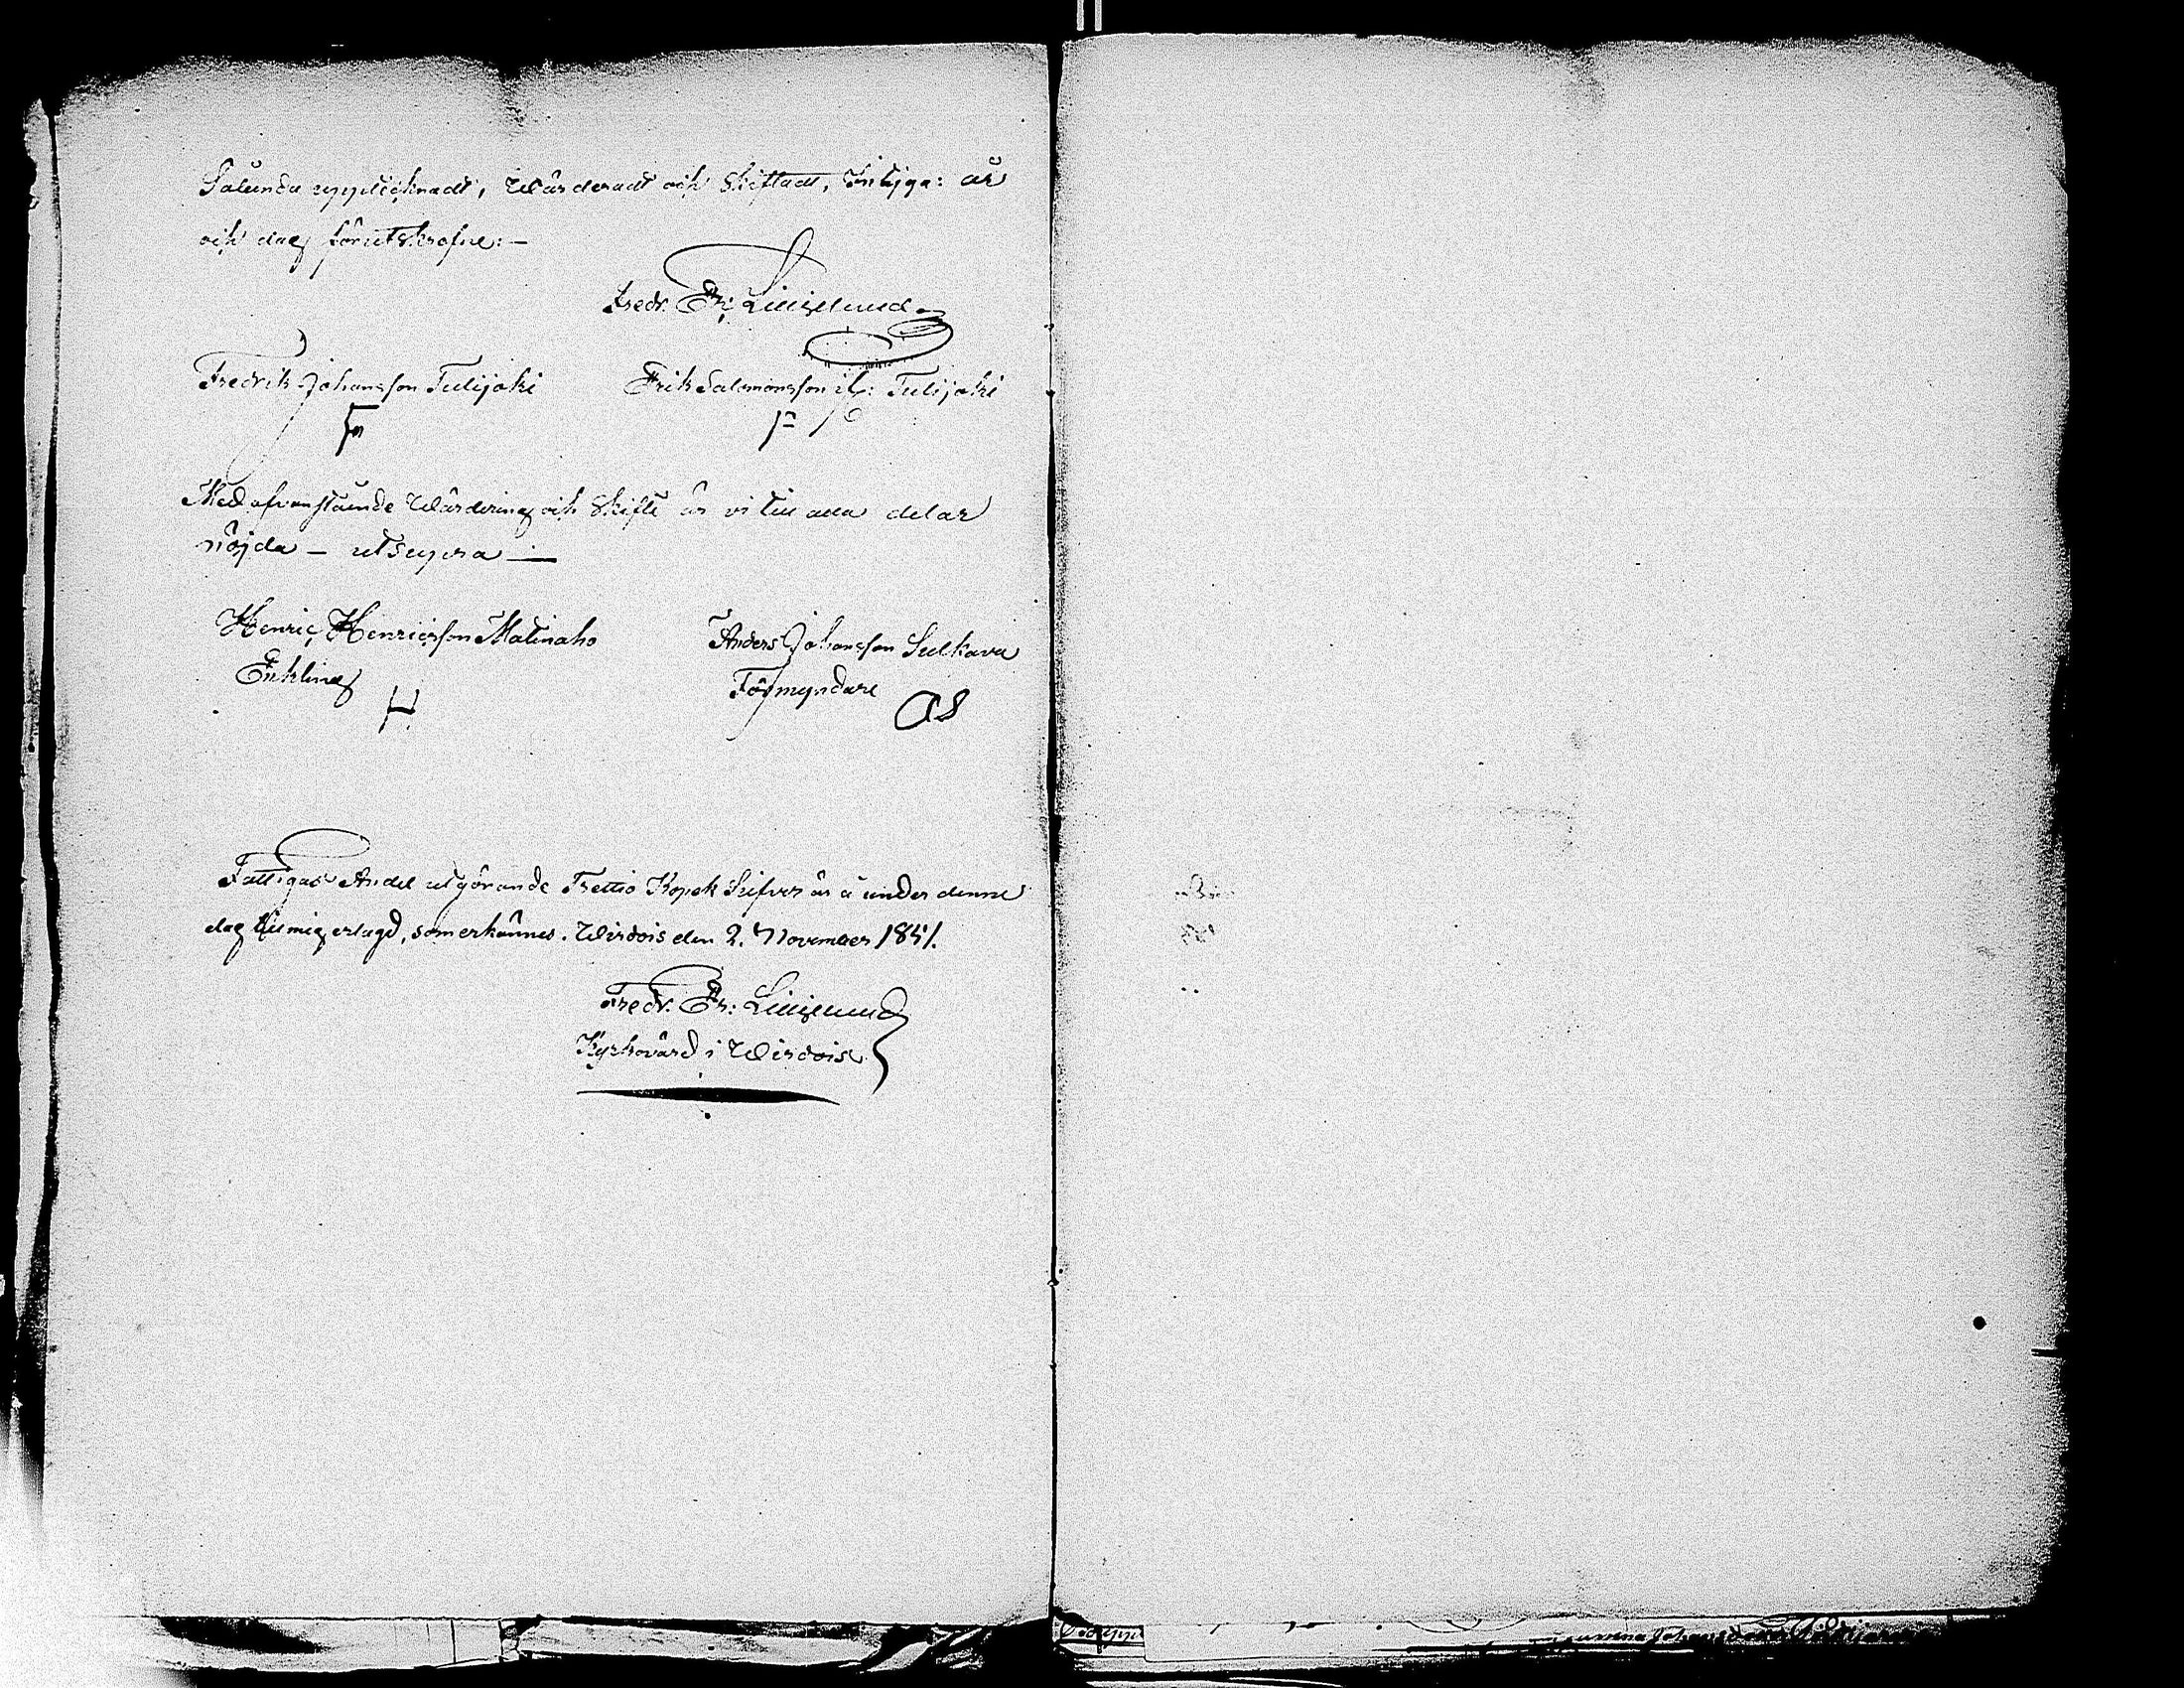 Sålunda upptecknadt, Wärderadt och Skiftadt, Intyga: år
och dag förutskrefne:—
Fredr. Fr: Lilljelund
Fredrik Johansson Tulijoki Erik Salomonsson Tulijoki
Med ofvanstående Wärdering och Skifte är vi till alla delar
nöjda — utsupra —
Henric Henricsson Matinaho Anders Johansson Sulkava
Enkling Förmyndare
H AS
Fattigas Andel utgörande Trettio Kopek Silfver är å under denne
dag till mig erlagd, som erkännes. Wirdois den 2. November 1851.
Fredr. Fr: Lilljelund
Kyrkovärd i Wirdois